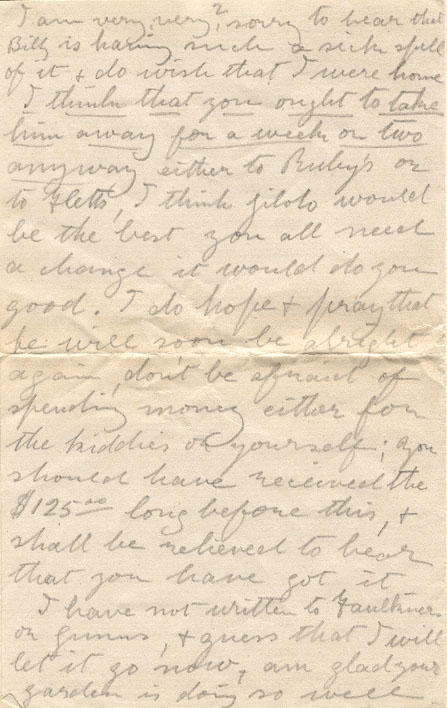 I am very, very, sorry to hear that
Billy is having such a sick spell
of it & do wish that I were home
I think that you ought to take
him away for a week or two
anyway either to Ruby's or
to Fletts, I think would
be the best you all need
a change it would do you
good. I do hope & pray that
he will soon be alright
again, don't be afraid of
spending money either for
the kiddies or yourself; you
should have received the
$125.00 long before this, &
shall be relieved to hear
that you have got it
I have not written to Faulkners
or Gunns, & guess that I will
let it go now, am glad your
garden is doing so well